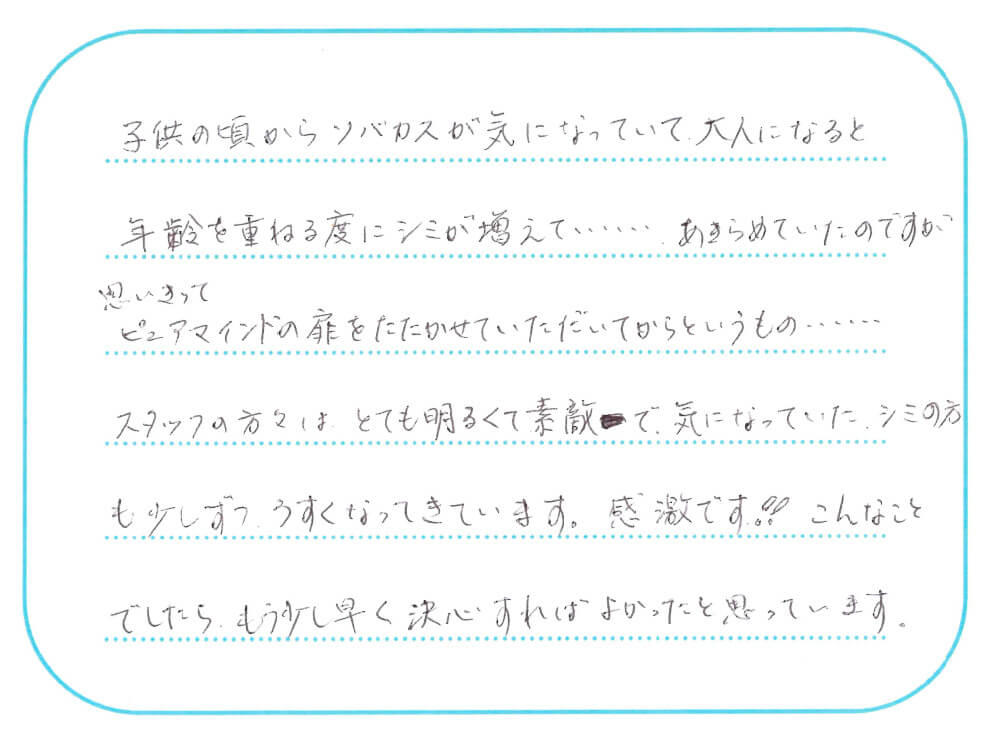 子供の頃からソバカスが気になっていて、大人になると
年齢を重ねる度にシミが増えて……、あきらめていたのですが
思いきって
ピュアマインドの扉をたたかせていただいてからというもの……
スタッフの方々は、とても明るくて素敵で、気になっていた、シミの方
も少しずつ、うすくなってきています。感激です!! こんなこと
でしたら、もう少し早く決心すればよかったと思っています。